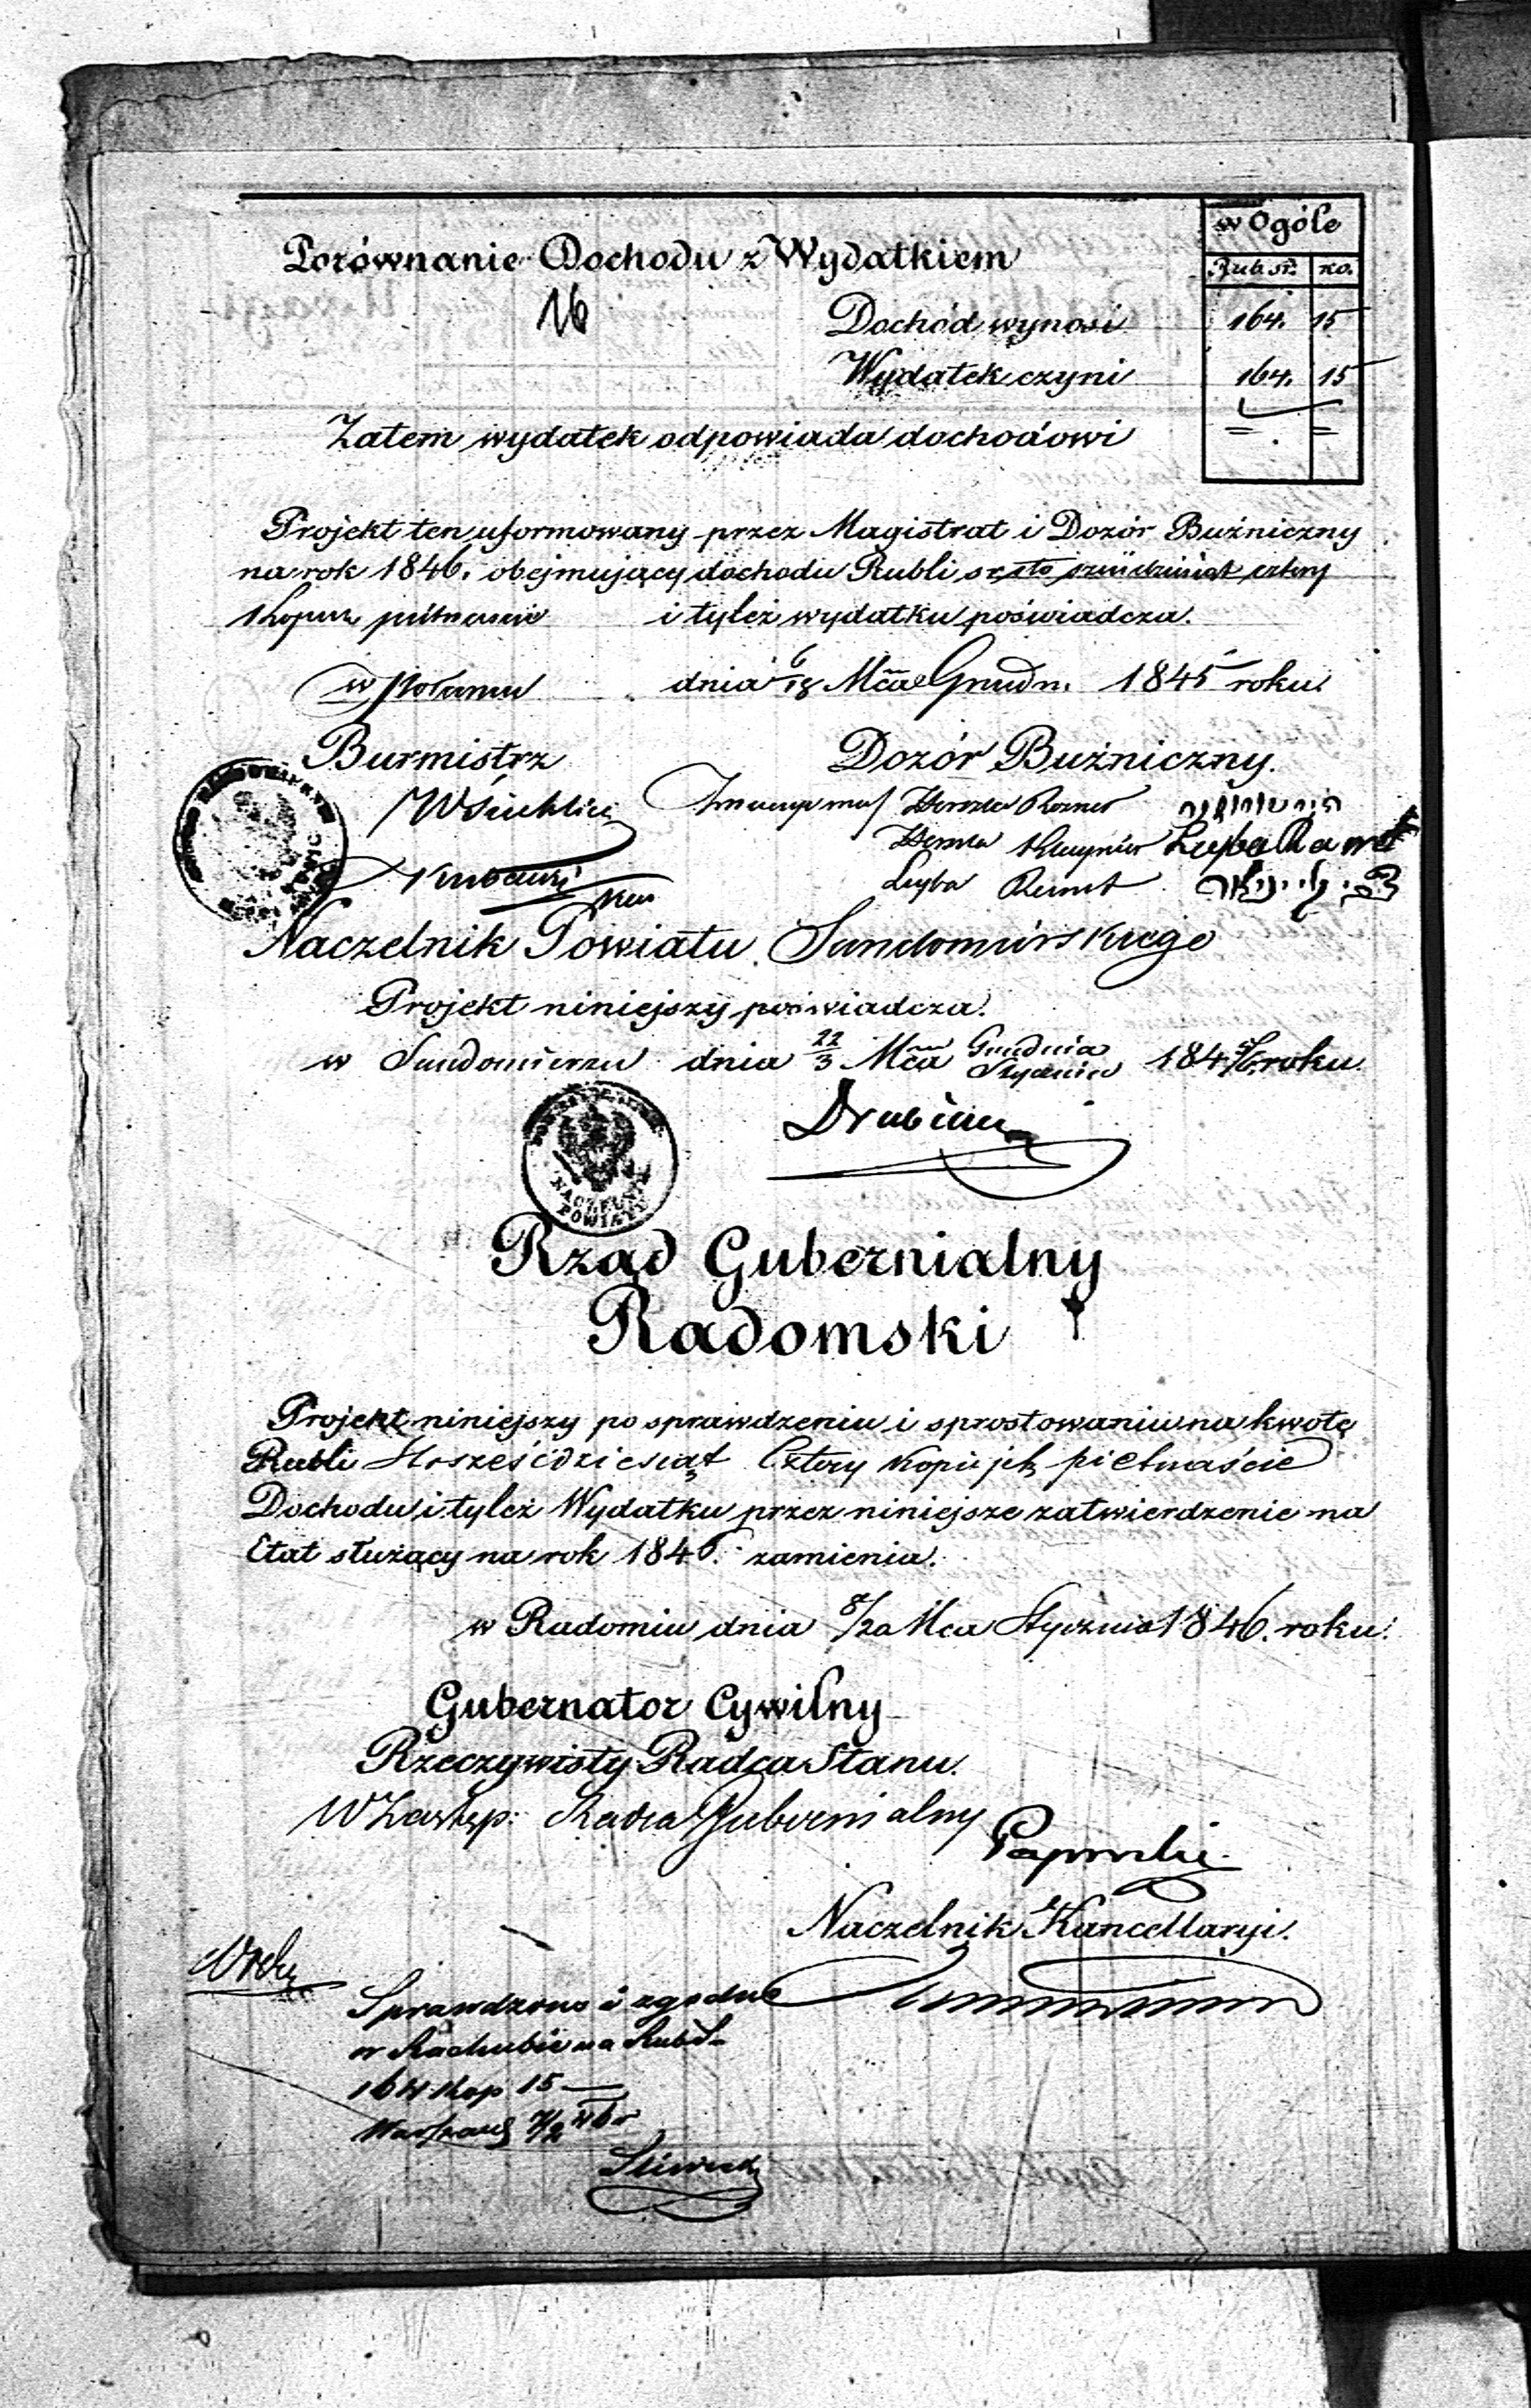 w Ogóle
Porównanie Dochodu z Wydatkiem
Rub. sr. ko.
16
Dochód wynosi 164. 15
Wydatek czyni 164. 15
Zatem wydatek odpowiada dochodowi
Projekt ten uformowany przez Magistrat i Dozór Buźniczny
na rok 1846. obejmujący dochodu Rubli sr. sto cztery
i tyleż wydatku poświadcza.
w dnia 6/18 Mca Grudn. 1845 roku.
Burmistrz Dozór Buźniczny.
Herszla Rozner
Leyba
Naczelnik Powiatu Sandomirskiego
Projekt niniejszy poświadcza.
w Sandomierzu dnia 22/3 Mca Grudnia/Stycznia 1845/6 roku.
NACZELNIK
POWIATU
Rząd Gubernialny
Radomski
Projekt niniejszy po sprawdzeniu i sprostowaniu na kwotę
Rubli Sto sześćdziesiąt Cztery kopiejek pietnaście
Dochodu i tyleż Wydatku przez niniejsze zatwierdzenie na
Etat służący na rok 1846. zamienia.
w Radomiu dnia 8/20 Mca Stycznia 1846. roku.
Gubernator Cywilny
Rzeczywisty Radca Stanu.
W Zastęp: Radca Gubernialny
Naczelnik Kancellaryi.
Sprawdzono i zgodne
w Rachubie na Rub S.
164 Kop 15